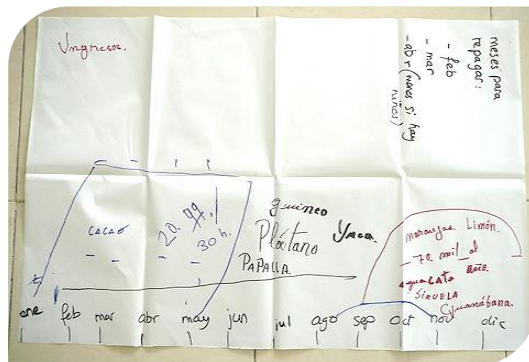 Ingresos.
meses para
repagar:
- feb
- mar
- abr (menos si hay
niños)
cacao
30 h.
guineo
Plátano
PAPALLA
Yuca.
naranjas. Limón.
- 70 mil al
año.
aguacate
SIRUELA
Guanábana.
ene feb mar abr may jun jul ago sep oct nov dic